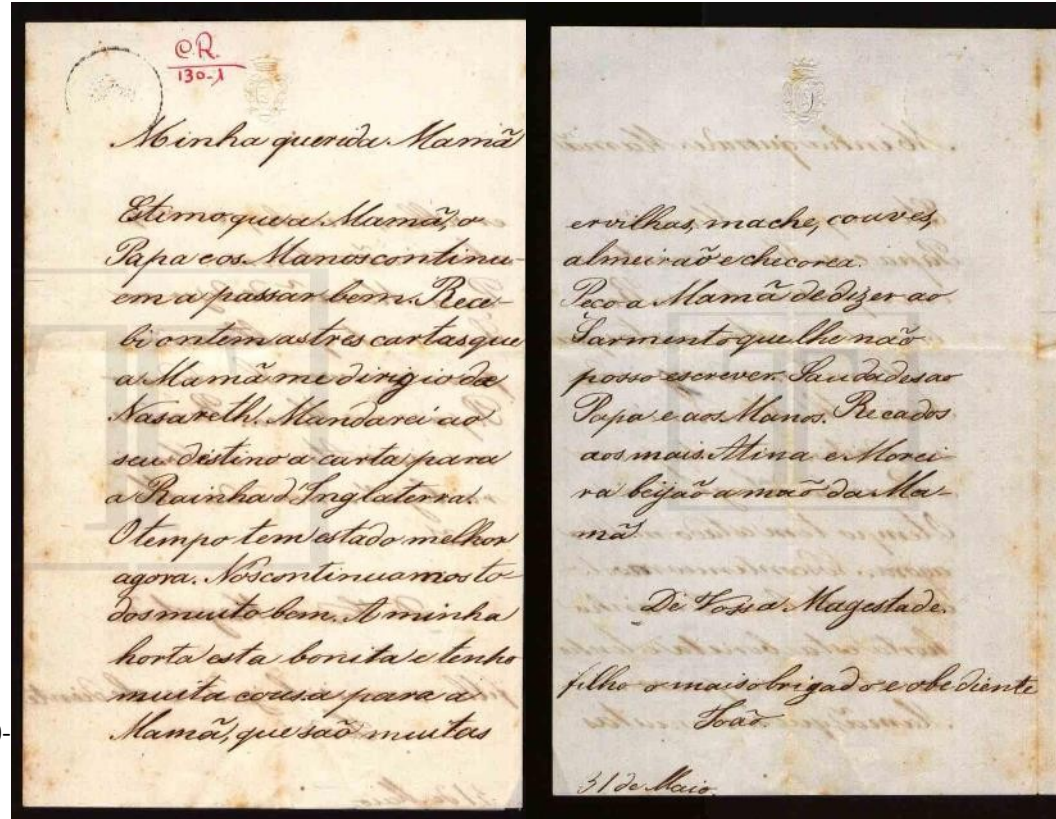 C.R.
130-1
Minha querida Mamã
Estimo que a Mamã, o
Papa e os Manos continu-
em a passar bem. Rece-
bi ontem as tres cartas que
a Mamã me dirigio da
Nasareth. Mandarei ao
seu destino a carta para
a Rainha d'Inglaterra.
O tempo tem estado melhor
agora. Nós continuamos to-
dos muito bem. A minha
horta esta bonita e tenho
muita cousa para a
Mamã, que são muitas
ervilhas, mache, couves,
almeirão e checorea.
Peço a Mamã de dizer ao
Sarmento que lhe não
posso escrever. Saudades ao
Papa e aos Manos. Recados
aos mais. A tina e Morei-
ra beijão a mão da Ma-
mã.
De Vossa Magestade.
filho o mais obrigado e obediente
João.
31 de Maio.